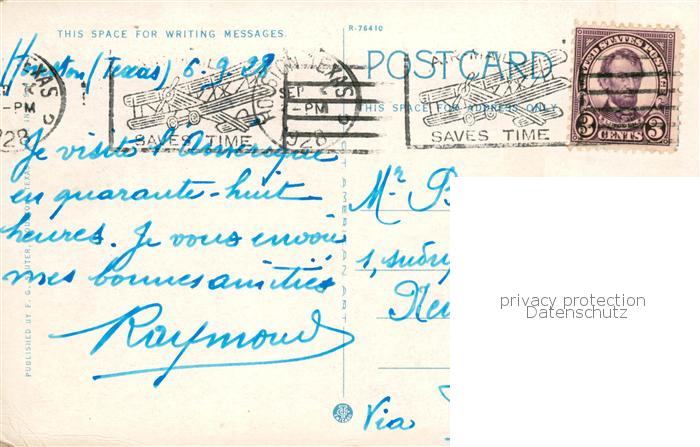 THIS SPACE FOR WRITING MESSAGES.
R-76410
POSTCARD
THIS SPACE FOR ADDRESS ONLY
Houston (Texas) 6.9.28
SAVES TIME
SEP
PM
1928
SAVES TIME
UNITED STATES POSTAGE
3 CENTS 3
Je visite l'Amérique
en quarante-huit
heures. Je vous envoie
mes bonnes amitiés
Raymond
Mr
1,
Via
PUBLISHED BY F. G. SUTER, HOUSTON, TEXAS
privacy protection
Datenschutz